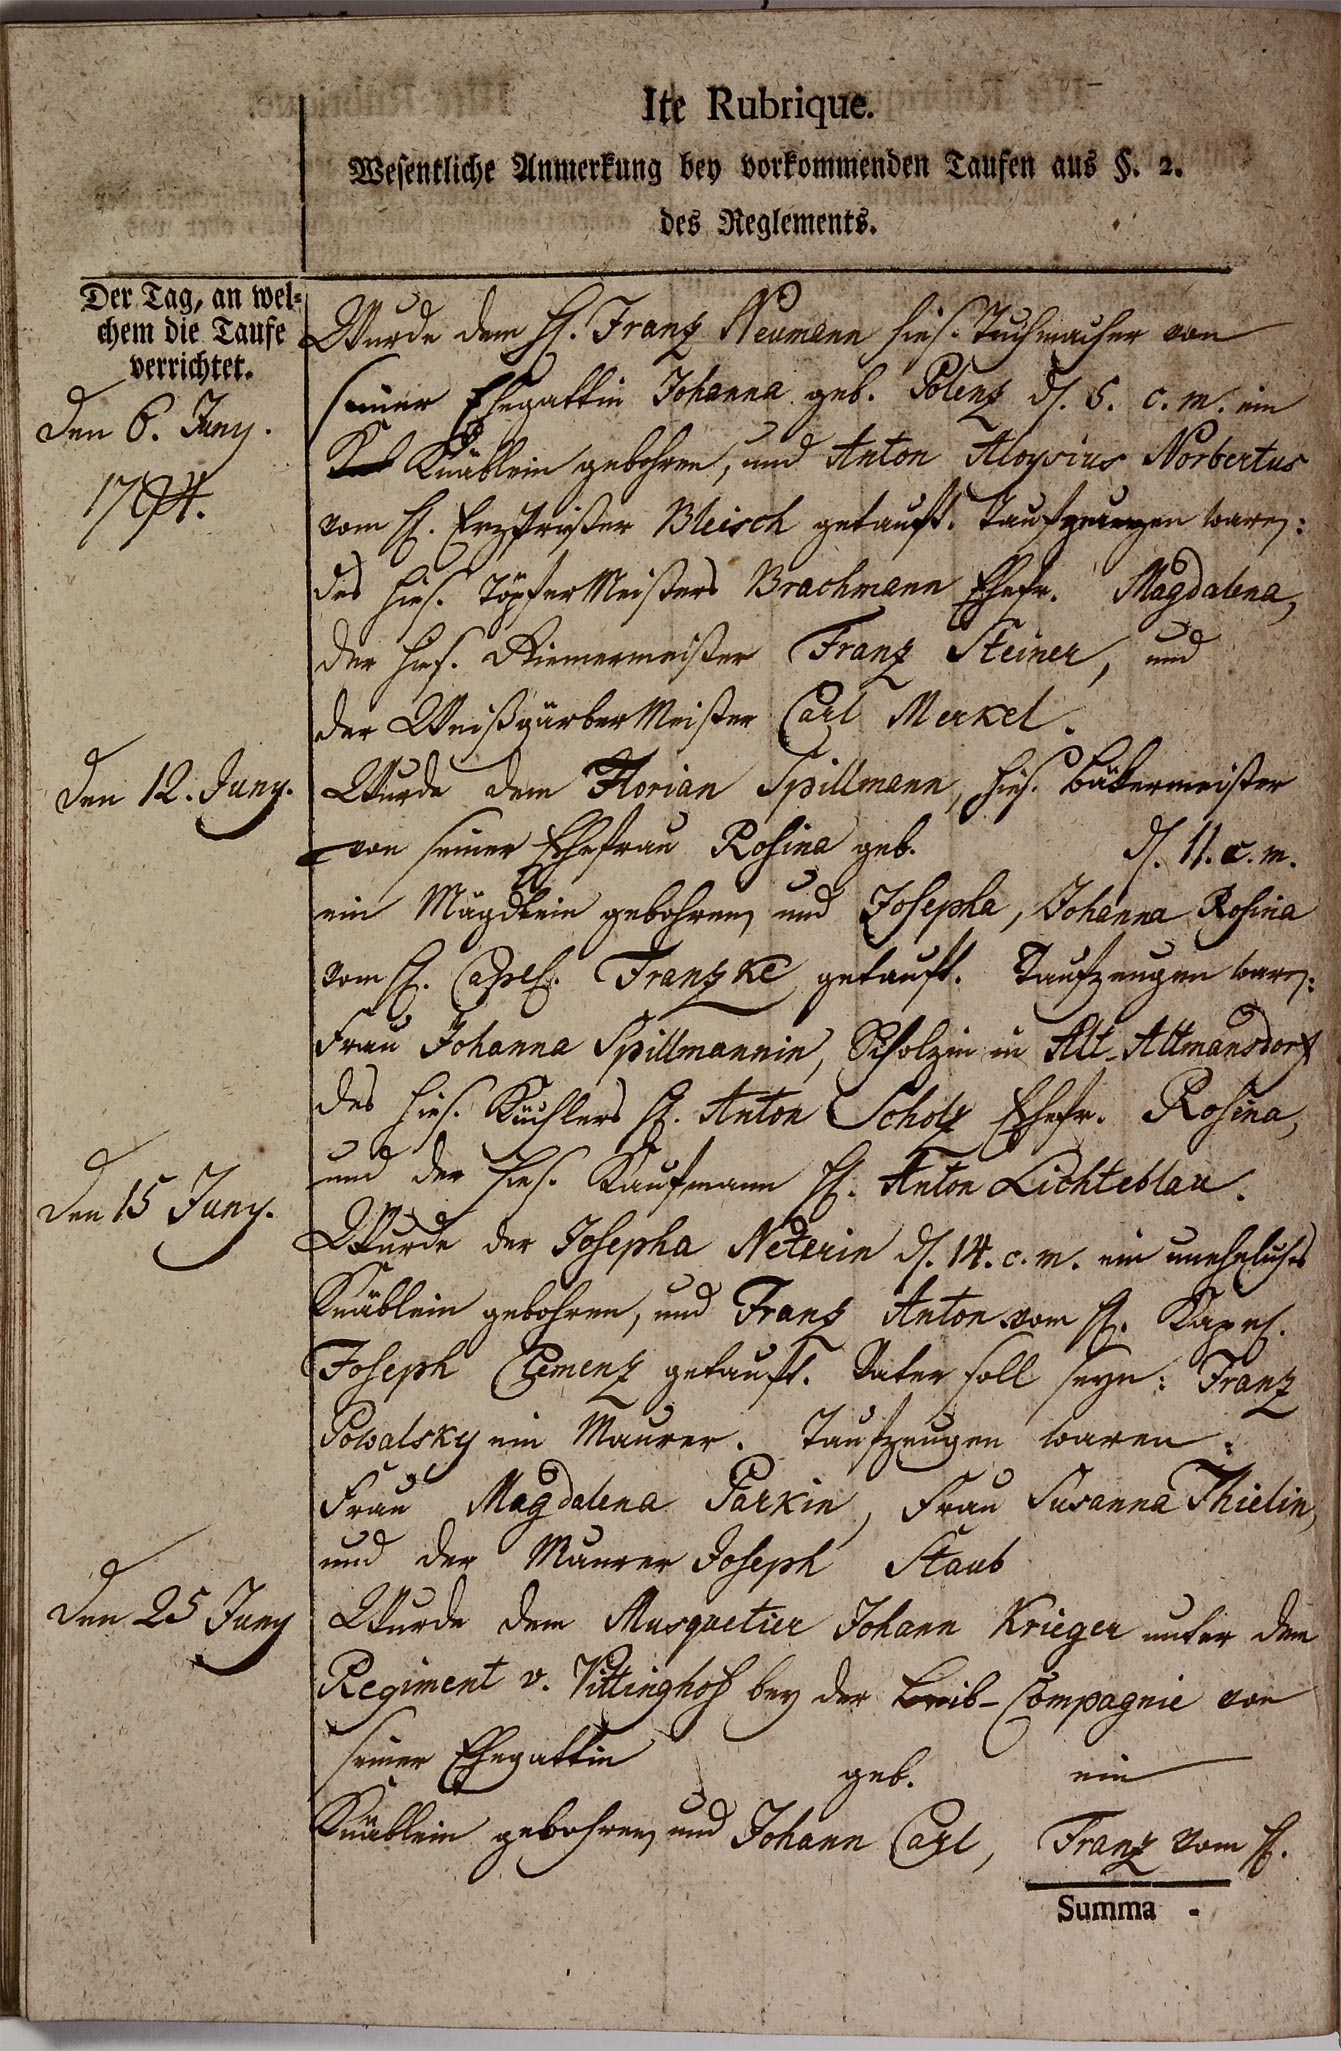 Ite Rubrique.
Wesentliche Anmerkung bey vorkommenden Taufen aus §. 2.
des Reglements.
Der Tag, an wel-
chem die Taufe
verrichtet.
Den 6. Juny.
Wurde dem H. Franz Neumann hies. Tuchmacher von
seiner Ehegattin Johanna geb. Polenz d. 5. c. m. ein
Knäblein gebohren, und Anton Aloysius Norbertus
vom H. Erzpriester Bleisch getauft. Taufzeugen waren:
des hies. Töpfer Meisters Brachmann Ehefr. Magdalena,
der hies. Riemermeister Franz Steiner, und
der Weißgärber Meister Carl Merkel.
Den 12. Juny.
Wurde dem Florian Spillmann, hies. Bäkermeister
von seiner Ehefrau Rosina geb. d. 11. c. m.
ein Mägdlein gebohren, und Josepha, Johanna Rosina
vom H. Capel. Franzke getauft. Taufzeugen waren:
Frau Johanna Spillmannin, Scholzin in Alt-Altmansdorf
des hies. Küchlers H. Anton Scholz Ehefr. Rosina,
und der hies. Kaufmann H. Anton Lichteblau.
Den 15 Juny.
Wurde der Josepha Neterin d. 14. c. m. ein unehliches
Knäblein gebohren, und Franz Anton vom H. Kapel.
Joseph Clemenz getauft. Vater soll seyn: Franz
Powalsky ein Maurer. Taufzeugen waren:
Frau Magdalena Parkin, Frau Susanna Thielin,
und der Maurer Joseph Staub
Den 25 Juny
Wurde dem Musquetier Johann Krieger unter dem
Regiment v. Vittinghof bey der Leib-Compagnie von
seiner Ehegattin geb. ein
Knäblein gebohren, und Johann Carl, Franz vom H.
Summa -